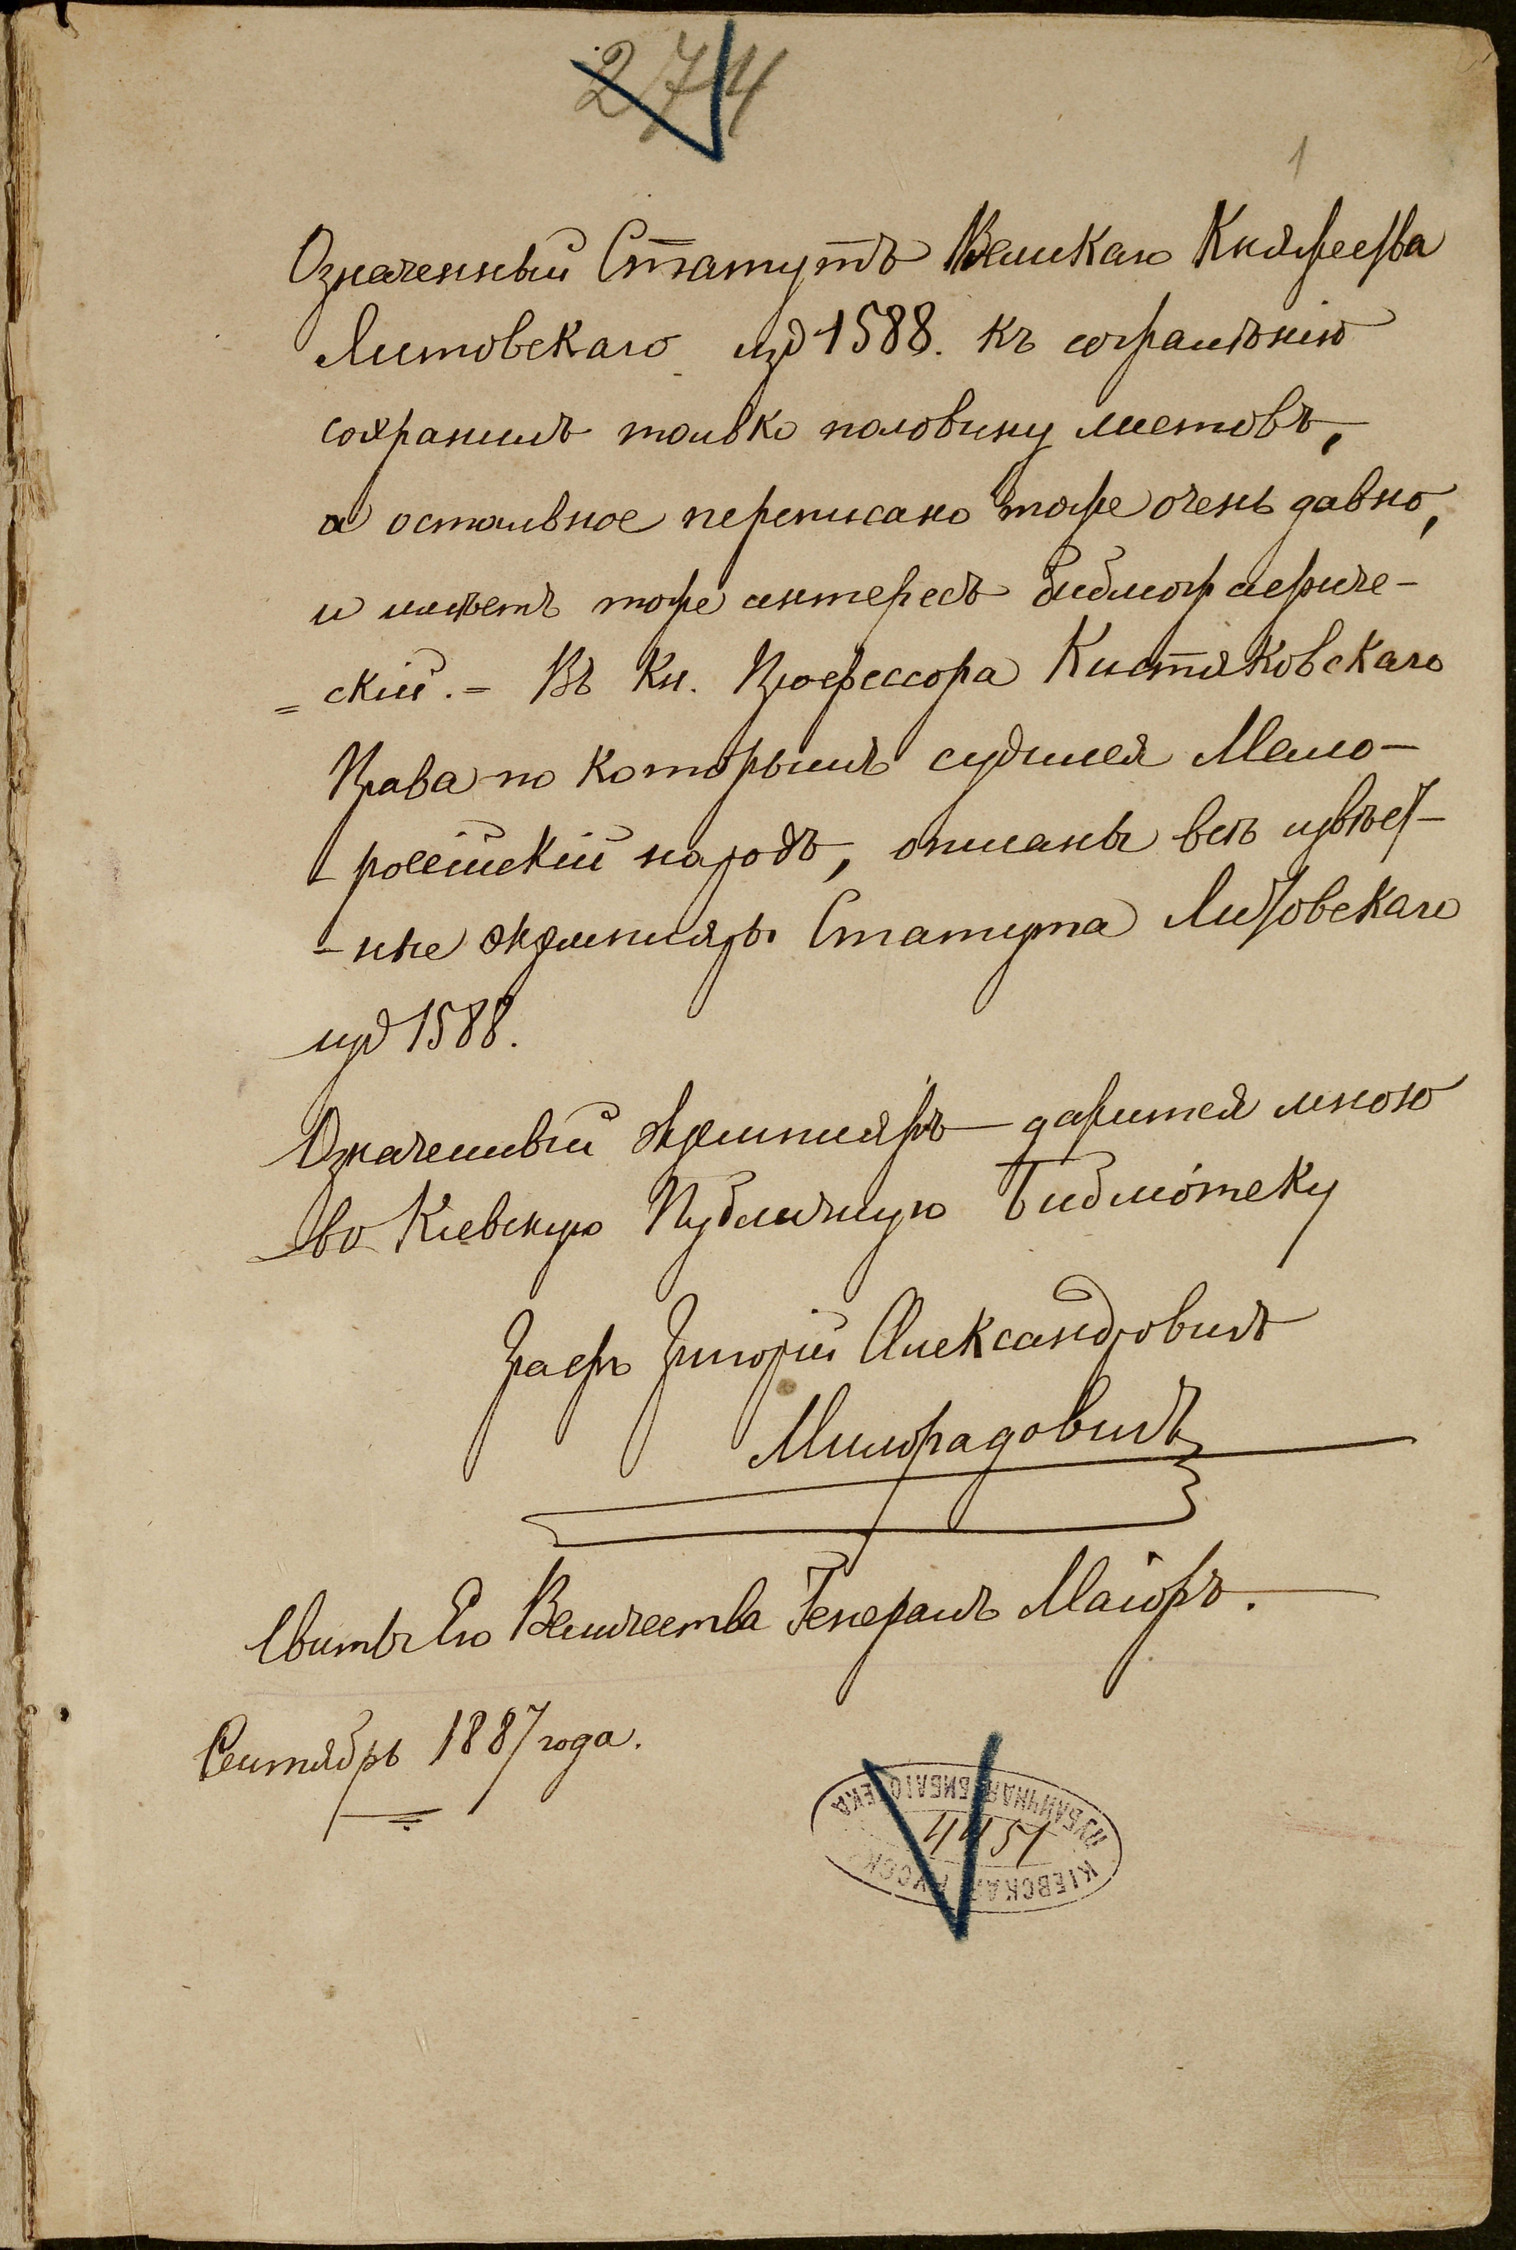 274
1
Означенный Статутъ Великаго Княжества
Литовскаго изд 1588. къ сожалѣнію
сохранилъ только половину листовъ,
а остальное переписано тоже очень давно,
и имѣетъ тоже интересъ библиографиче-
=скій. - Въ Кн. Профессора Кистяковскаго
Права по которымъ судился Мало-
-россійскій народъ, описаны всѣ извѣст-
-ные экземпляры Статута Литовскаго
изд 1588.
Означенный экземпляръ дарится мною
во Кіевскую Публичную Библіотеку
Графъ Григорій Александровичъ
Милорадовичъ
Свиты Его Величества Генералъ Маіоръ.
Сентябрь 1887 года.
ПУБЛИЧНАЯ БИБЛІОТЕКА
4451
КІЕВСКАЯ РУССК